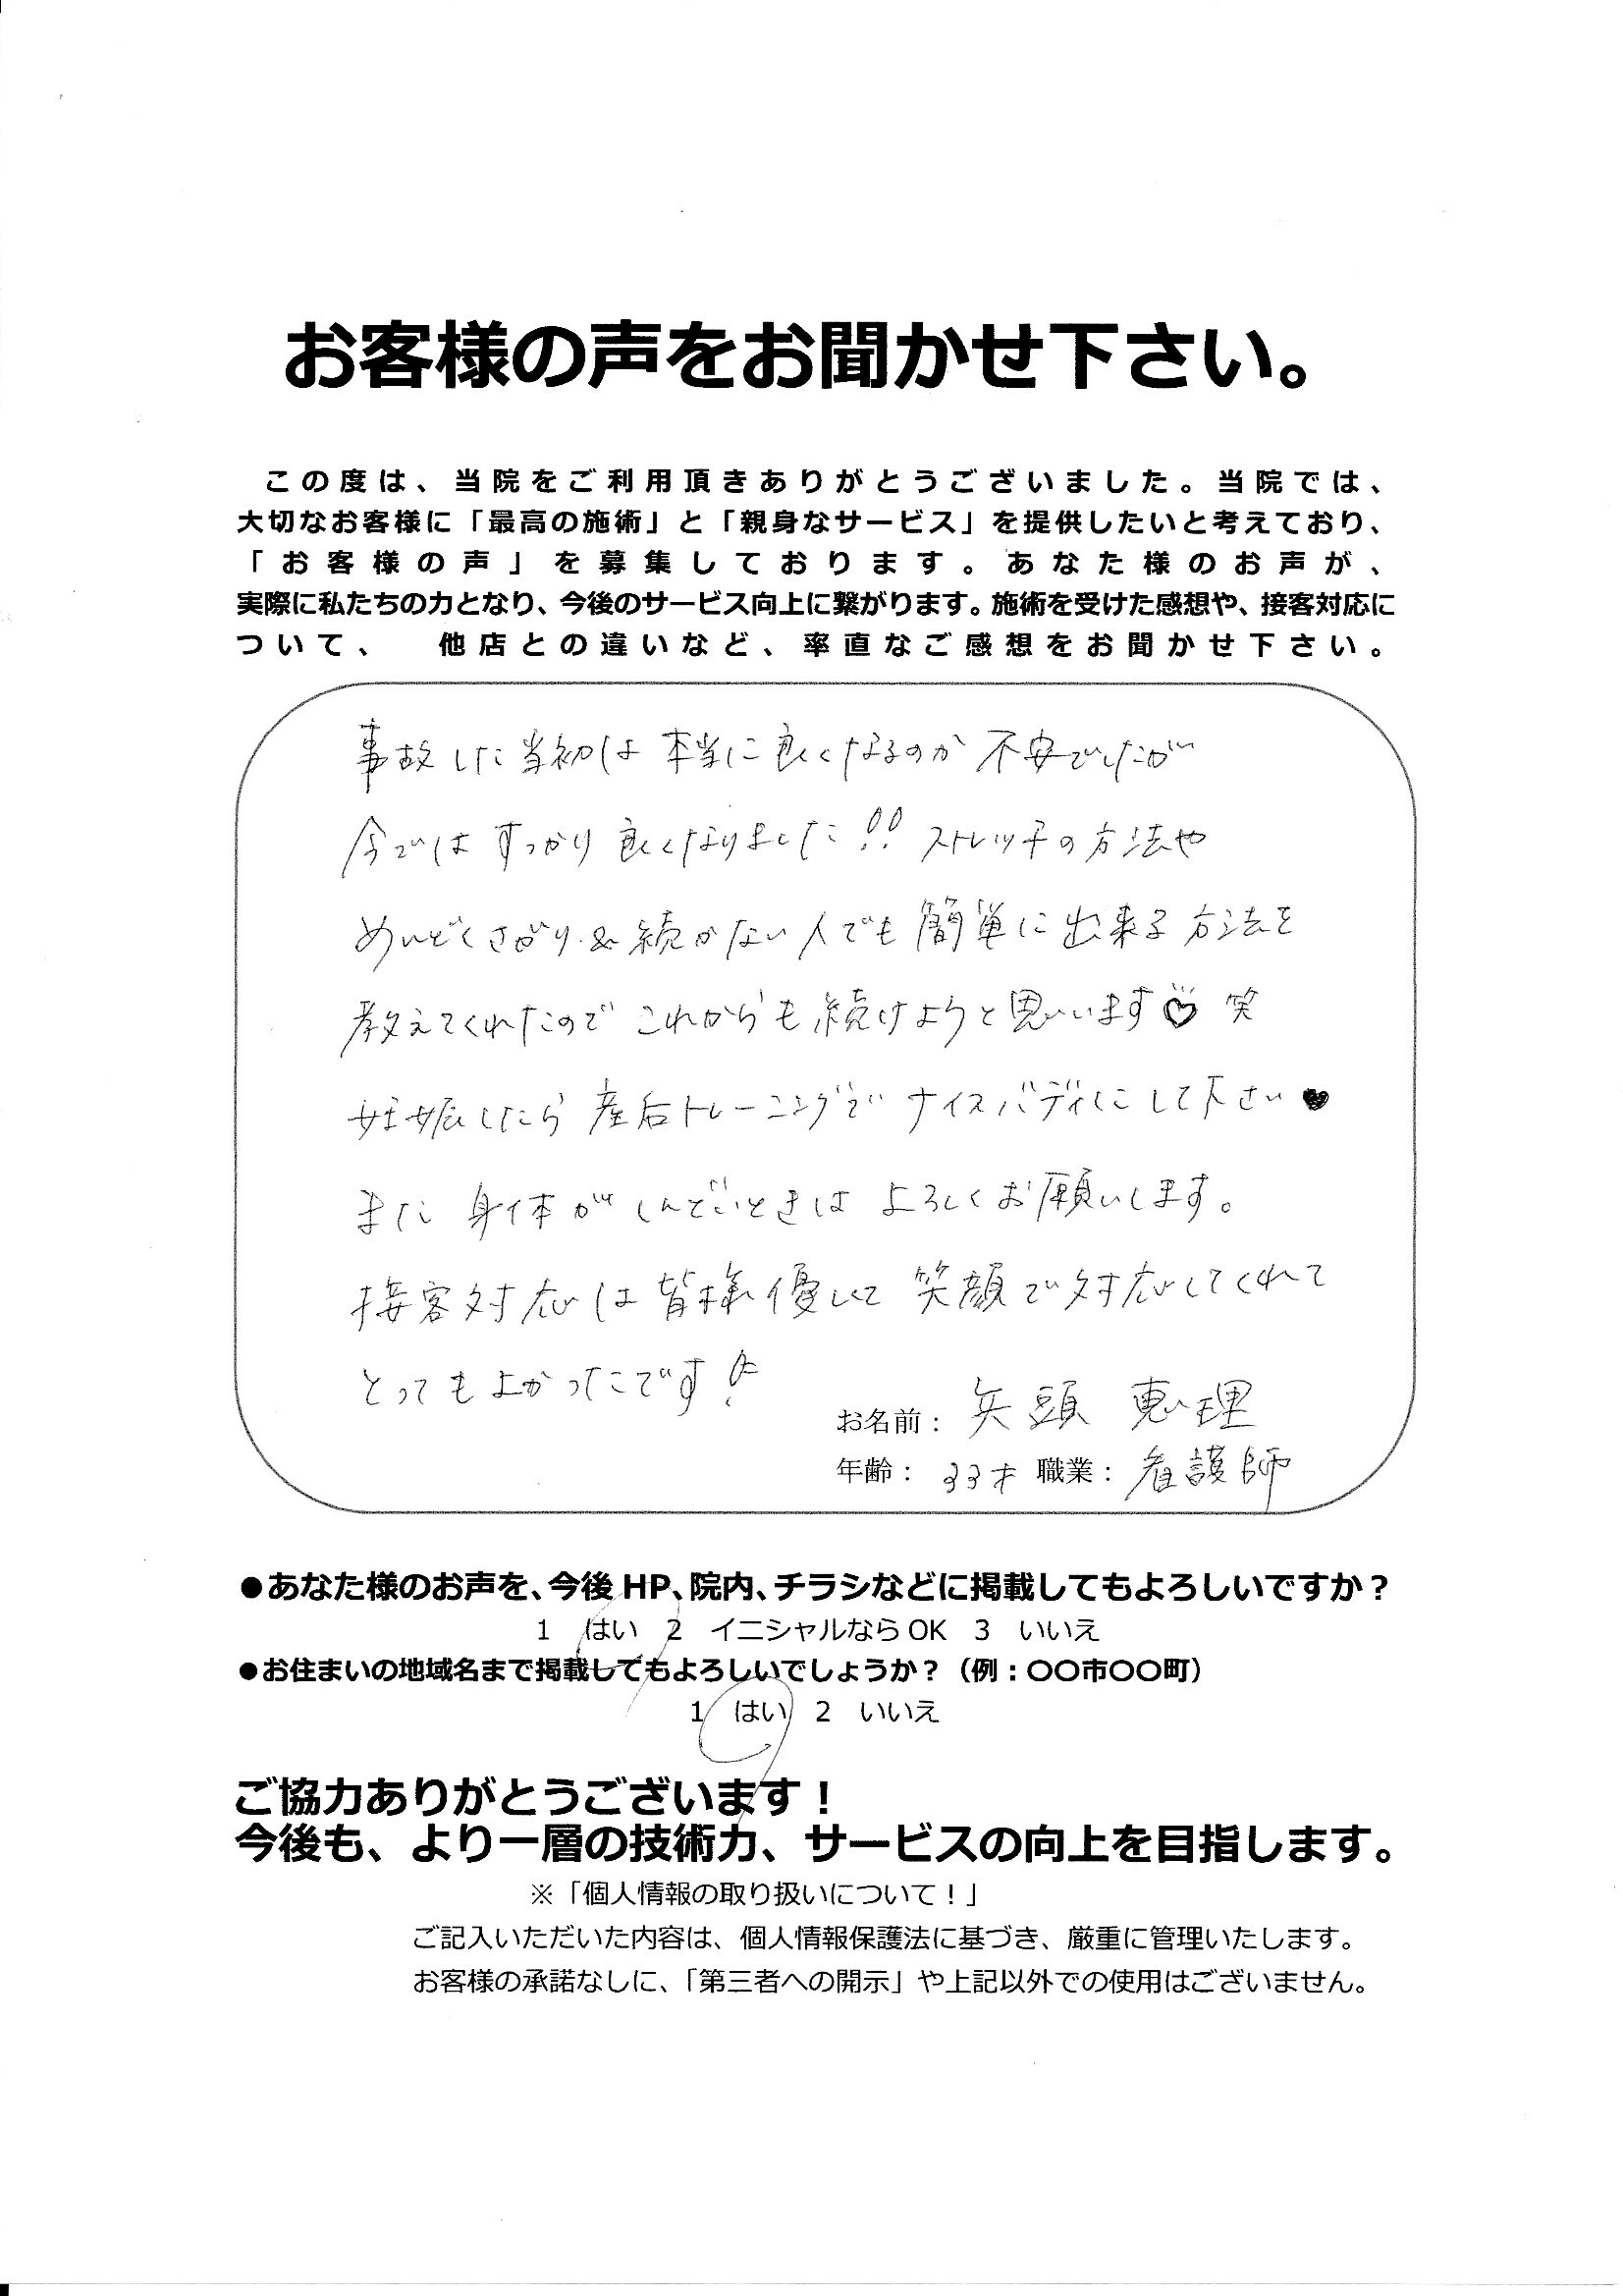 お客様の声をお聞かせ下さい。
この度は、当院をご利用頂きありがとうございました。当院では、
大切なお客様に「最高の施術」と「親身なサービス」を提供したいと考えており、
「お客様の声」を募集しております。あなた様のお声が、
実際に私たちの力となり、今後のサービス向上に繋がります。施術を受けた感想や、接客対応に
ついて、 他店との違いなど、率直なご感想をお聞かせ下さい。
事故した当初は本当に良くなるのか不安でしたが
今ではすっかり良くなりました!! ストレッチの方法や
めんどくさがり&続かない人でも簡単に出来る方法を
教えてくれたのでこれからも続けようと思います♡ 笑
妊娠したら産后トレーニングでナイスバディにして下さい♥
また身体がしんどいときはよろしくお願いします。
接客対応は皆様優しくて笑顔で対応してくれて
とってもよかったです!
お名前: 矢頭 恵理
年齢: 33才 職業: 看護師
●あなた様のお声を、今後 HP、院内、チラシなどに掲載してもよろしいですか?
1 はい 2 イニシャルなら OK 3 いいえ
●お住まいの地域名まで掲載してもよろしいでしょうか?（例:〇〇市〇〇町）
1 はい 2 いいえ
ご協力ありがとうございます!
今後も、より一層の技術力、サービスの向上を目指します。
※「個人情報の取り扱いについて!」
ご記入いただいた内容は、個人情報保護法に基づき、厳重に管理いたします。
お客様の承諾なしに、「第三者への開示」や上記以外での使用はございません。